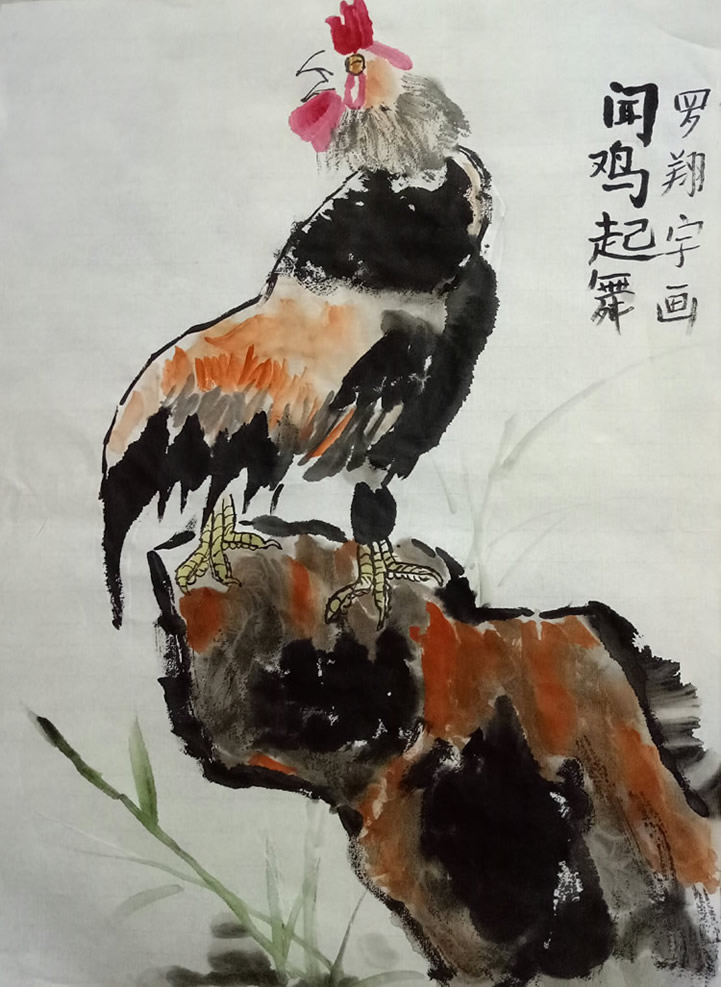 闻鸡起舞
罗翔宇画